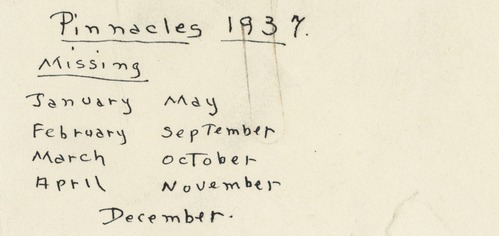 Pinnacles 1937.
Missing
January May
February September
March October
April November
December.